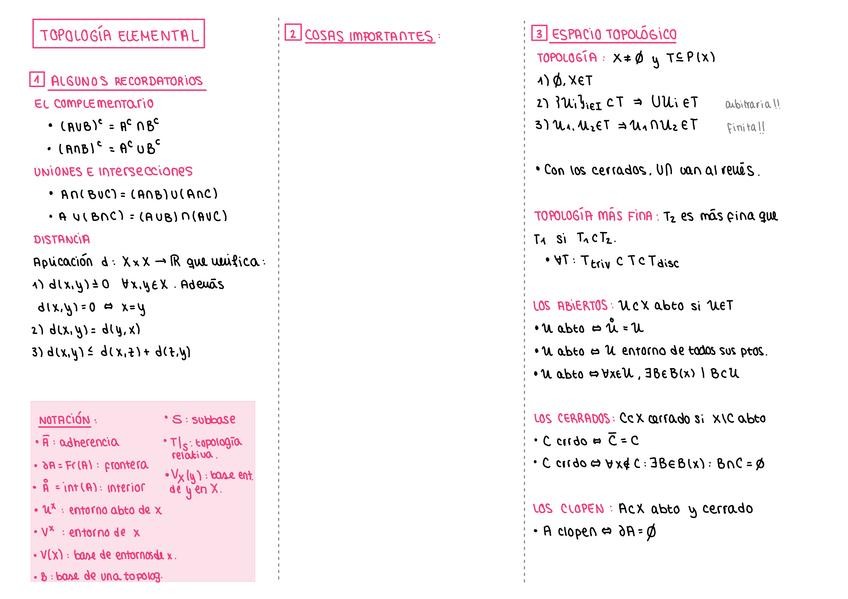 TOPOLOGÍA ELEMENTAL
1 ALGUNOS RECORDATORIOS
EL COMPLEMENTARIO
• (A∪B)ᶜ = Aᶜ ∩ Bᶜ
• (A∩B)ᶜ = Aᶜ ∪ Bᶜ
UNIONES E INTERSECCIONES
• A∩(B∪C) = (A∩B)∪(A∩C)
• A ∪(B∩C) = (A∪B)∩(A∪C)
DISTANCIA
Aplicación d: X×X → ℝ que verifica:
1) d(x,y)≥0 ∀x,y∈X. Además
d(x,y)=0 ⇔ x=y
2) d(x,y) = d(y,x)
3) d(x,y) ≤ d(x,z) + d(z,y)
NOTACIÓN:
• Ā : adherencia
• ∂A = Fr(A) : frontera
• Å = int(A) : interior
• 𝒰ˣ : entorno abto de x
• Vˣ : entorno de x
• V(x) : base de entornos de x.
• B : base de una topolog.
• S : subbase
• T|ₛ : topología
relativa.
• Vₓ(y) : base ent.
de y en X.
2 COSAS IMPORTANTES:
3 ESPACIO TOPOLÓGICO
TOPOLOGÍA: X≠∅ y T⊆P(X)
1) ∅, X∈T
2) {𝒰i}i∈I ⊂ T ⇒ ∪𝒰i ∈ T arbitraria!!
3) 𝒰₁, 𝒰₂∈T ⇒ 𝒰₁∩𝒰₂ ∈ T Finita!!
• Con los cerrados, ∪∩ van al revés.
TOPOLOGÍA MÁS FINA: T₂ es más fina que
T₁ si T₁⊂T₂.
• ∀T : Ttriv ⊂ T ⊂ Tdisc
LOS ABIERTOS: 𝒰⊂X abto si 𝒰∈T
• 𝒰 abto ⇔ 𝒰̊ = 𝒰
• 𝒰 abto ⇔ 𝒰 entorno de todos sus ptos.
• 𝒰 abto ⇔ ∀x∈𝒰, ∃B∈B(x) | B⊂𝒰
LOS CERRADOS: C⊂X cerrado si X\C abto
• C crrdo ⇔ C̄ = C
• C crrdo ⇔ ∀x∉C : ∃B∈B(x) : B∩C = ∅
LOS CLOPEN: A⊂X abto y cerrado
• A clopen ⇔ ∂A = ∅